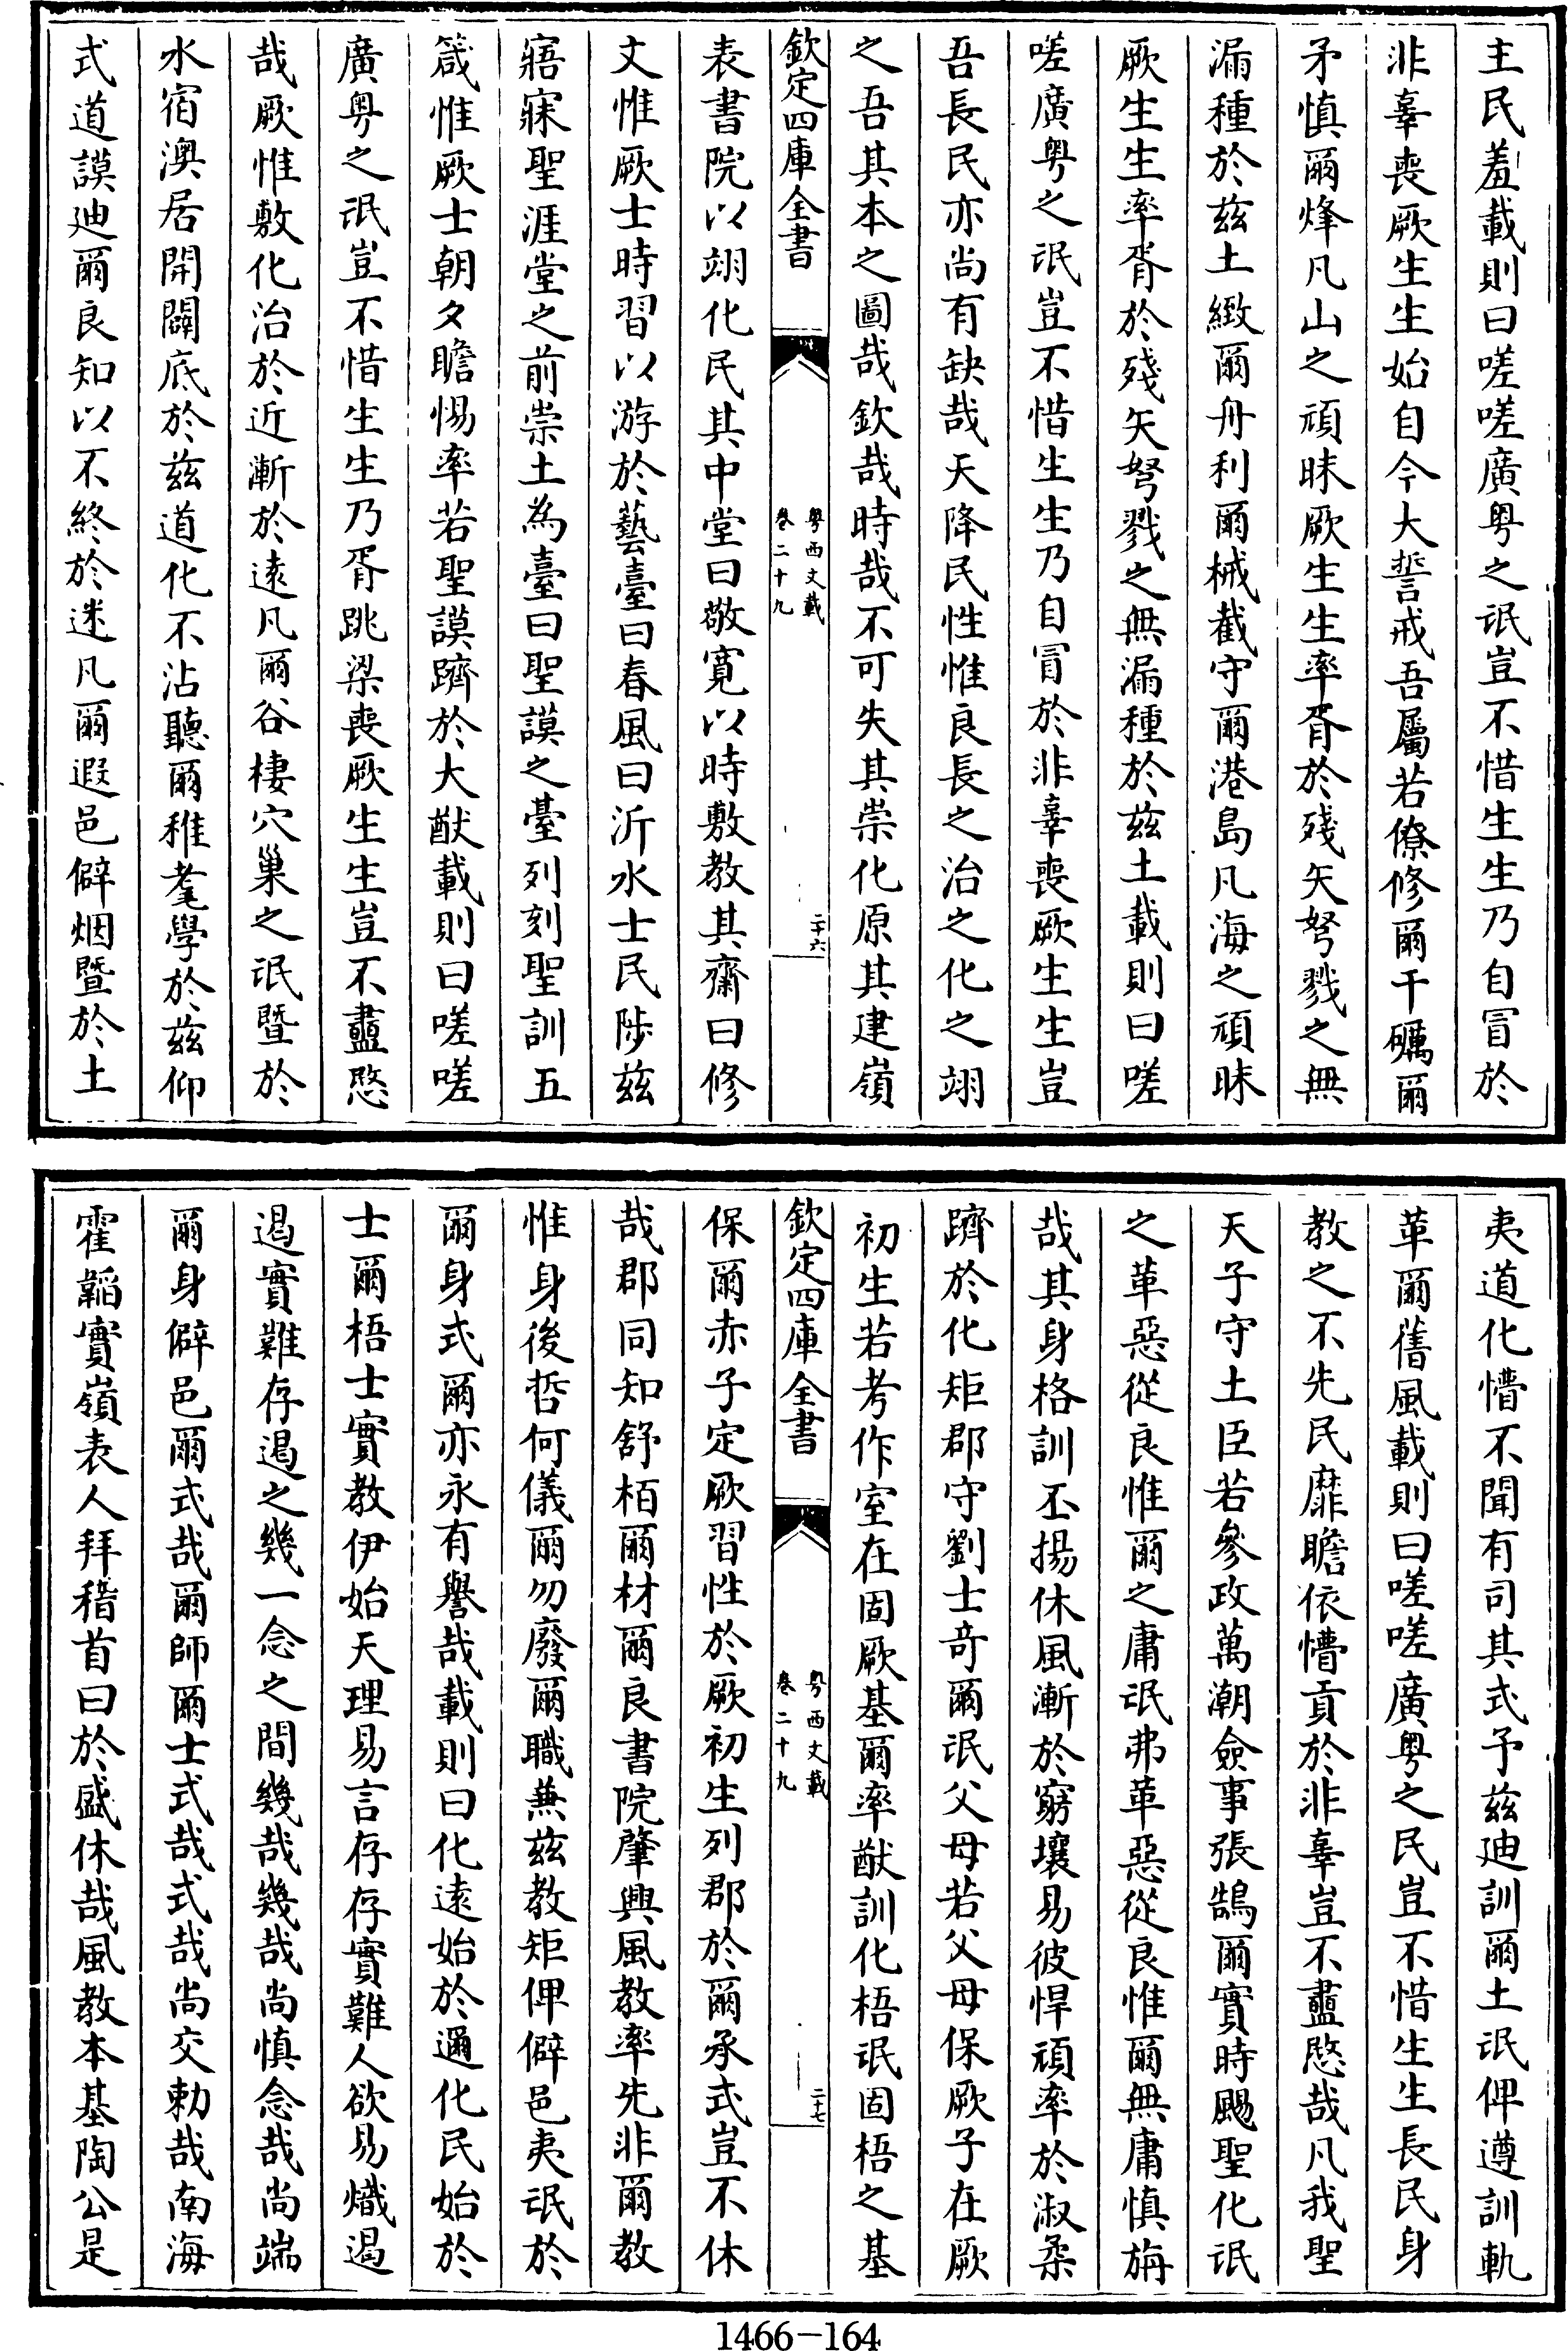 主民羞載則曰嗟嗟廣粤之氓豈不惜生生乃自冒於
非辜喪厥生生始自今大誓戒吾屬若僚修爾干礪爾
矛慎爾烽凡山之頑昧厥生生率胥於殘矢弩戮之無
漏種於兹土緻爾舟利爾械截守爾港島凡海之頑昧
厥生生率胥於殘矢弩戮之無漏種於兹土載則曰嗟
嗟廣粤之氓豈不惜生生乃自冒於非辜喪厥生生豈
吾長民亦尚有缺哉天降民性惟良長之治之化之翊
之吾其本之圖哉欽哉時哉不可失其崇化原其建嶺
欽定四庫全書
粤西文載
卷二十九
二十六
表書院以翊化民其中堂曰敬寛以時敷教其齋曰修
文惟厥士時習以游於藝臺曰春風曰沂水士民陟兹
寤寐聖涯堂之前崇土為臺曰聖謨之臺列刻聖訓五
箴惟厥士朝夕瞻惕率若聖謨躋於大猷載則曰嗟嗟
廣粤之氓豈不惜生生乃胥跳梁喪厥生生豈不衋愍
哉厥惟敷化治於近漸於逺凡爾谷棲穴巢之氓暨於
水宿澳居開闢底於兹道化不沾聽爾稚耄學於兹仰
式道謨迪爾良知以不終於迷凡爾遐邑僻烟暨於土
夷道化懵不聞有司其式予兹迪訓爾土氓俾遵訓軌
革爾舊風載則曰嗟嗟廣粤之民豈不惜生生長民身
教之不先民靡瞻依懵貢於非辜豈不衋愍哉凡我聖
天子守土臣若參政萬潮僉事張鵠爾實時颺聖化氓
之革惡從良惟爾之庸氓弗革惡從良惟爾無庸慎旃
哉其身格訓丕揚休風漸於窮壤易彼悍頑率於淑柔
躋於化矩郡守劉士竒爾氓父母若父母保厥子在厥
初生若考作室在固厥基爾率猷訓化梧氓固梧之基
欽定四庫全書
粤西文載
卷二十九
二十七
保爾赤子定厥習性於厥初生列郡於爾承式豈不休
哉郡同知舒栢爾材爾良書院肇興風教率先非爾教
惟身後哲何儀爾勿廢爾職兼兹教矩俾僻邑夷氓於
爾身式爾亦永有譽哉載則曰化逺始於邇化民始於
士爾梧士實教伊始天理易言存存實難人欲易熾遏
遏實難存遏之幾一念之間幾哉幾哉尚慎念哉尚端
爾身僻邑爾式哉爾師爾士式哉式哉尚交勅哉南海
霍韜實嶺表人拜稽首曰於盛休哉風教本基陶公是
1466-164